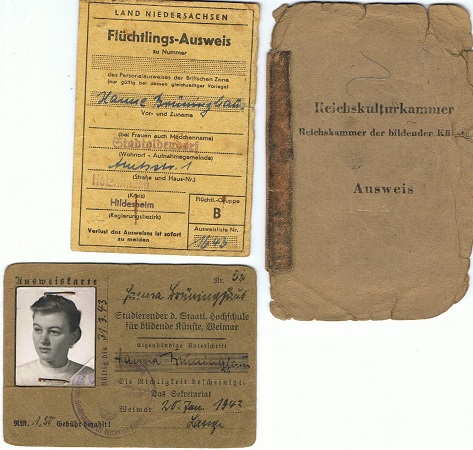 LAND NIEDERSACHSEN
Flüchtlings-Ausweis
zu Nummer
des Personalausweises der Britischen Zone
(nur gültig bei dessen gleichzeitiger Vorlage)
Hanne Brüninghaus
Vor- und Zuname
(bei Frauen auch Mädchenname)
Stadtoldendorf
(Wohnort - Aufnahmegemeinde)
Amtsstr. 1
(Straße und Haus-Nr.)
Holzminden
(Kreis)
Hildesheim
(Regierungsbezirk)
Flüchtl.-Gruppe
B
Ausweisliste Nr.
1643
Verlust des Ausweises ist sofort
zu melden
Reichskulturkammer
Reichskammer der bildenden
Ausweis
Ausweiskarte
Nr. 53
Hanna Brüninghaus
Studierender d. Staatl. Hochschule
für bildende Künste, Weimar
Gültig bis 31.3.43
Eigenhändige Unterschrift
Hanna Brüninghaus
Die Richtigkeit bescheinigt:
Das Sekretariat
Weimar 20. Jan. 1942
Lange
RM. 1.50 Gebühr bezahlt!